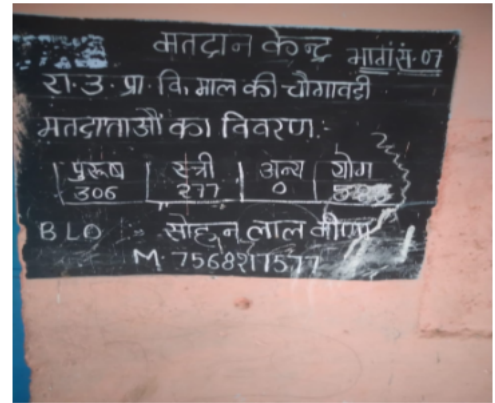 मतदान केन्द्र भाग सं. 07
रा. उ. प्रा. वि. माल की चौगावडी
मतदाताओं का विवरण :-
पुरूष स्त्री अन्य योग
306 277 0
BLO :- सोहन लाल मीणा
M. 7568217577